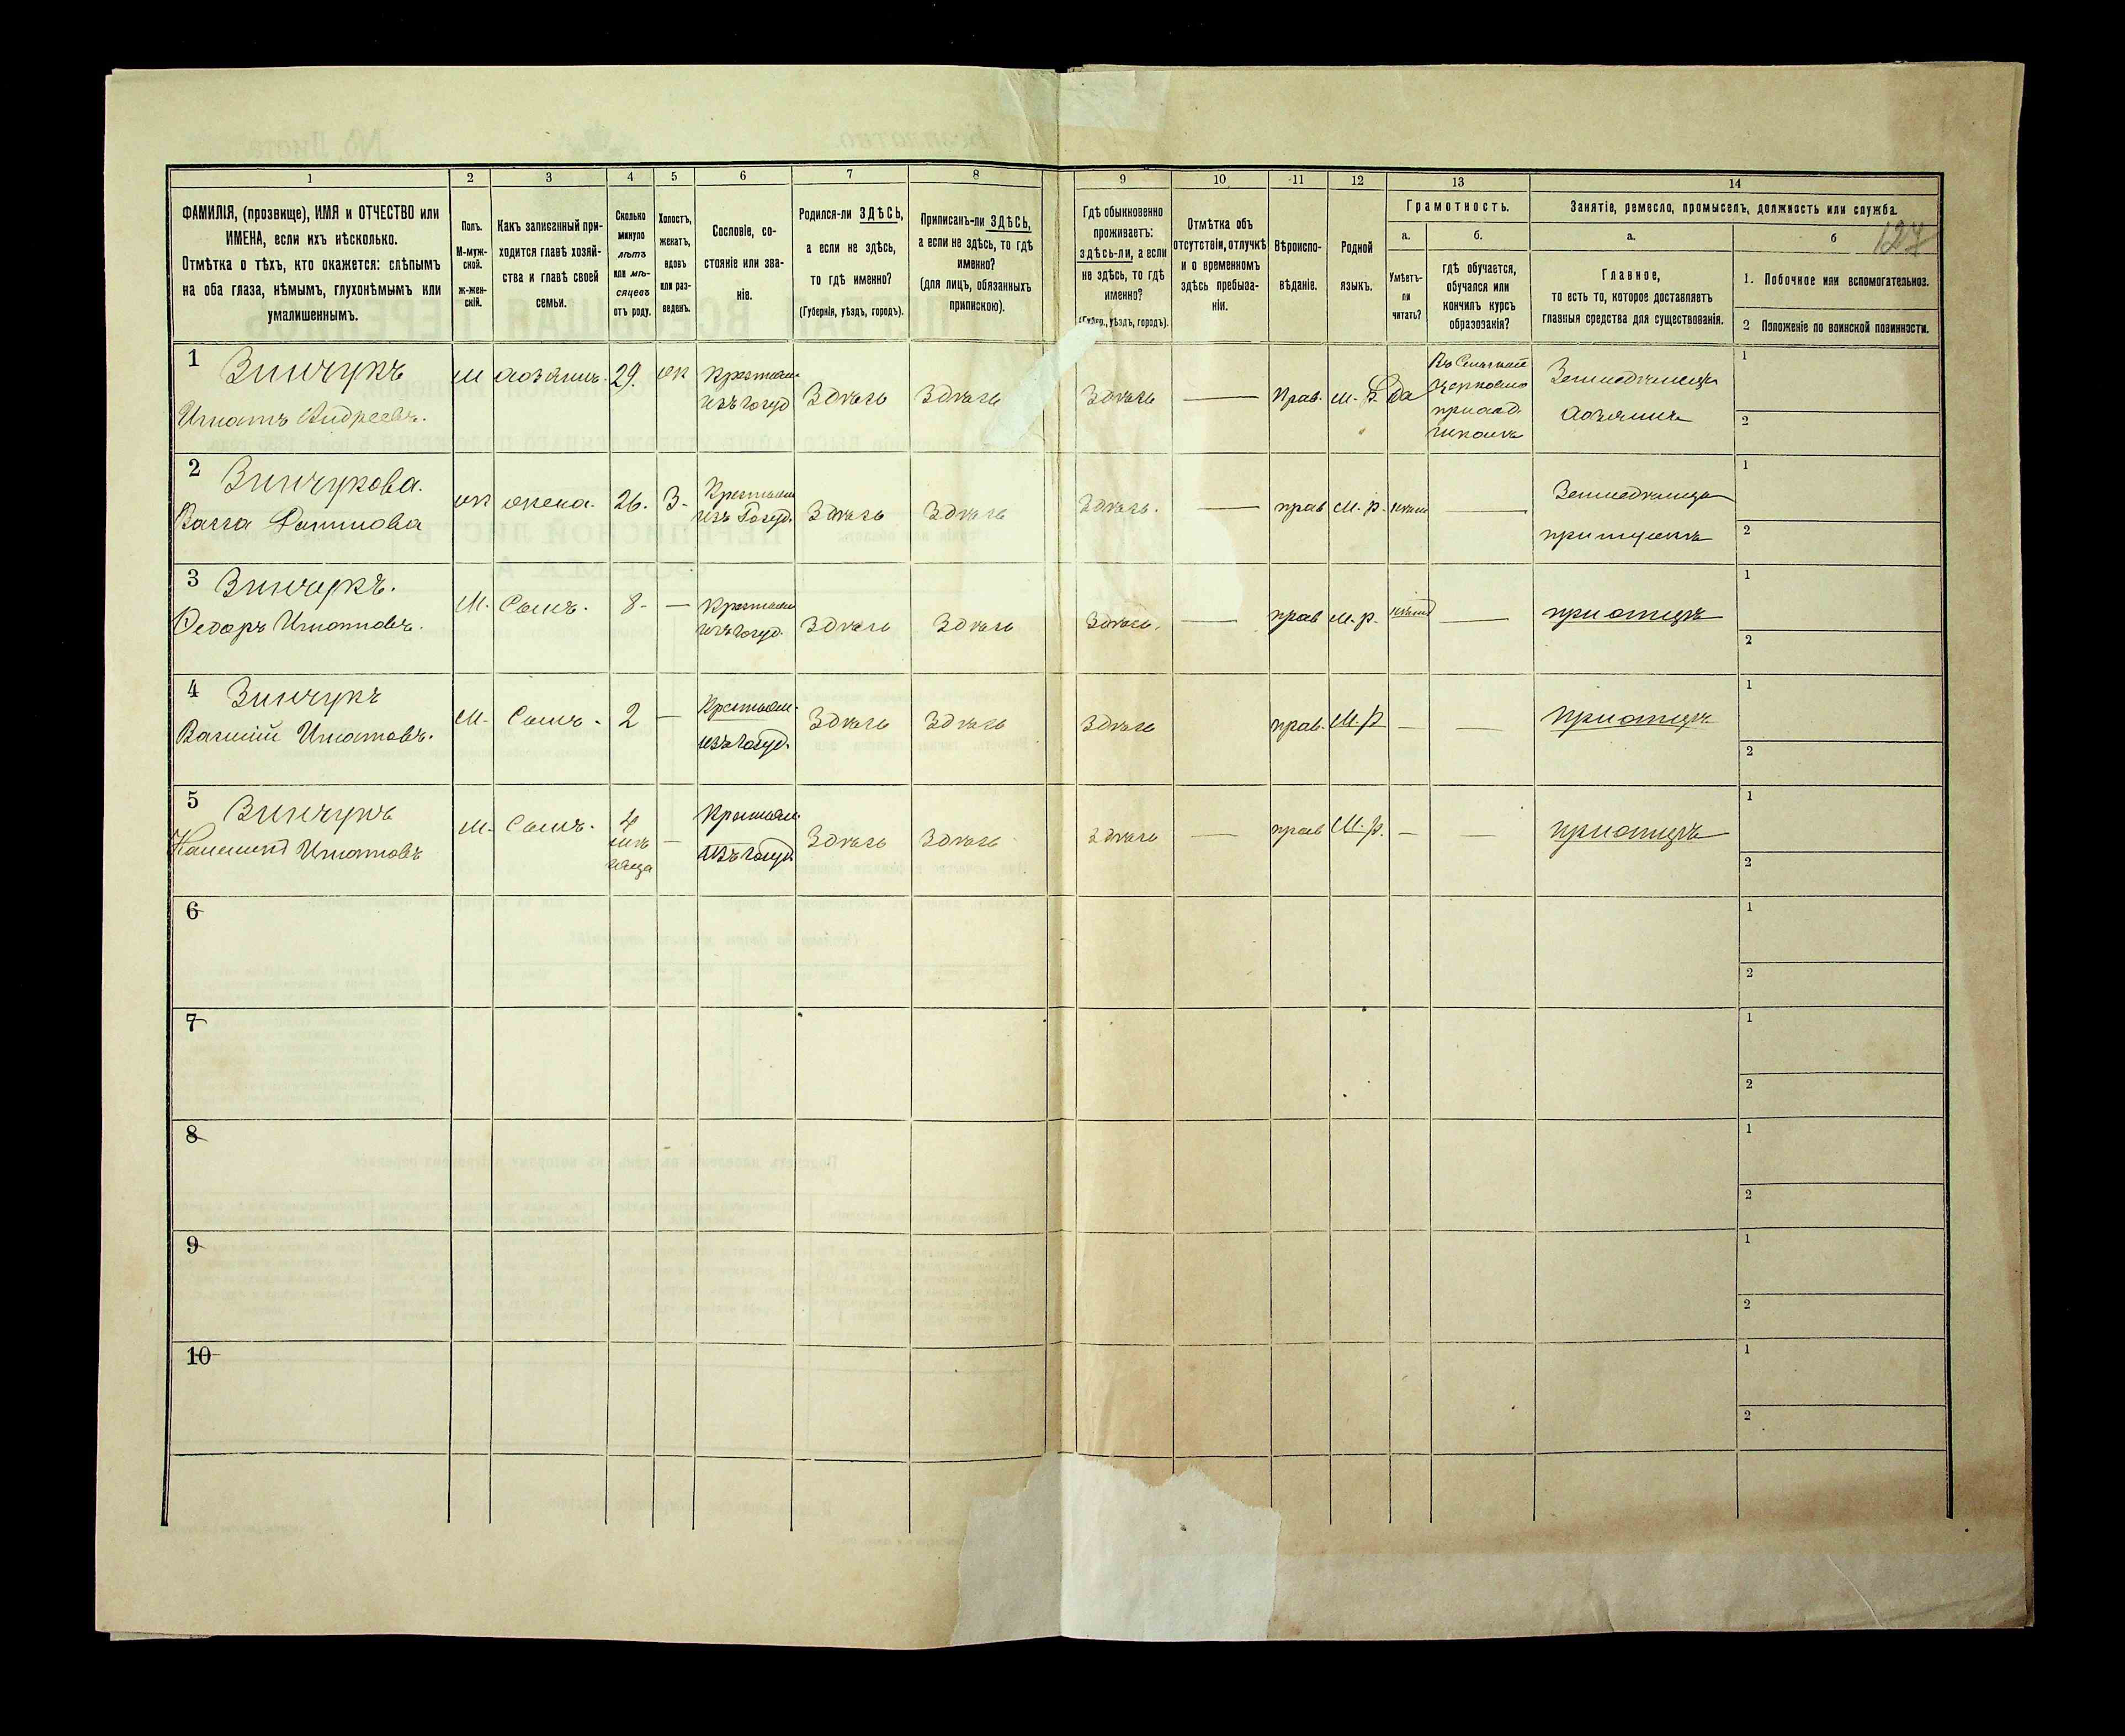 1 2 3 4 5 6 7 8 9 10 11 12 13 14
ФАМИЛІЯ, (прозвище), ИМЯ и ОТЧЕСТВО или
ИМЕНА, если ихъ нѣсколько.
Отмѣтка о тѣхъ, кто окажется: слѣпымъ
на оба глаза, нѣмымъ, глухонѣмымъ или
умалишеннымъ.
Полъ.
М-муж-
ской.
ж-жен-
скій.
Какъ записанный при-
ходится главѣ хозяй-
ства и главѣ своей
семьи.
Сколько
минуло
лѣтъ
или мѣ-
сяцевъ
отъ роду.
Холостъ,
женатъ,
вдовъ
или раз-
веденъ.
Сословіе, со-
стояніе или зва-
ніе.
Родился-ли ЗДѢСЬ,
а если не здѣсь,
то гдѣ именно?
(Губернія, уѣздъ, городъ).
Приписанъ-ли ЗДѢСЬ,
а если не здѣсь, то гдѣ
именно?
(для лицъ, обязанныхъ
припискою).
Гдѣ обыкновенно
проживаетъ:
здѣсь-ли, а если
не здѣсь, то гдѣ
именно?
(Губер., уѣздъ, городъ).
Отмѣтка объ
отсутствіи, отлучкѣ
и о временномъ
здѣсь пребыва-
ніи.
Вѣроиспо-
вѣданіе.
Родной
языкъ.
Грамотность.
а.
Умѣетъ-
ли
читать?
б.
гдѣ обучается,
обучался или
кончилъ курсъ
образованія?
Занятіе, ремесло, промыселъ, должность или служба.
а.
Главное,
то есть то, которое доставляетъ
главныя средства для существованія.
б
127
1. Побочное или вспомогательное.
2 Положеніе по воинской повинности.
1 Зинчукъ
Игнатъ Андреевъ.
м хозяинъ. 29. ж Крестьян. изъ госуд Здѣсь Здѣсь Здѣсь — Прав. м. р. да
церковно
приход.
школѣ
Земледѣлецъ
хозяинъ
1
2
2 Зинчукова.
ж жена. 26. З. Крестьян изъ Госуд. Здѣсь Здѣсь Здѣсь. — прав м. р. —
Земледѣлица
при мужѣ
1
2
3 Зинчукъ.
Федоръ Игнатовъ.
м. Сынъ. 8 - — Крестьян изъ госуд. Здѣсь Здѣсь Здѣсь. — прав м. р. — при отцѣ
1
2
4 Зинчукъ
Василій Игнатовъ.
м. Сынъ. 2 — Крестьян. изъ госуд. Здѣсь Здѣсь Здѣсь прав. м. р — — при отцѣ
1
2
5 Зинчукъ
Игнатовъ
м. Сынъ. 4 мѣ сяца — Крестьян. изъ госуд. Здѣсь Здѣсь Здѣсь — прав м. р. — — при отцѣ
1
2
6
1
2
7
1
2
8
1
2
9
1
2
10
1
2